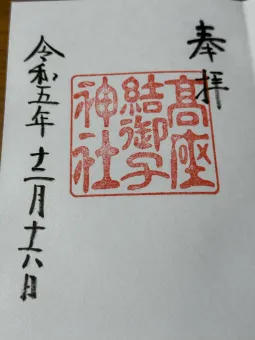 奉拝
高座
結御子
神社
令和五年十二月十六日